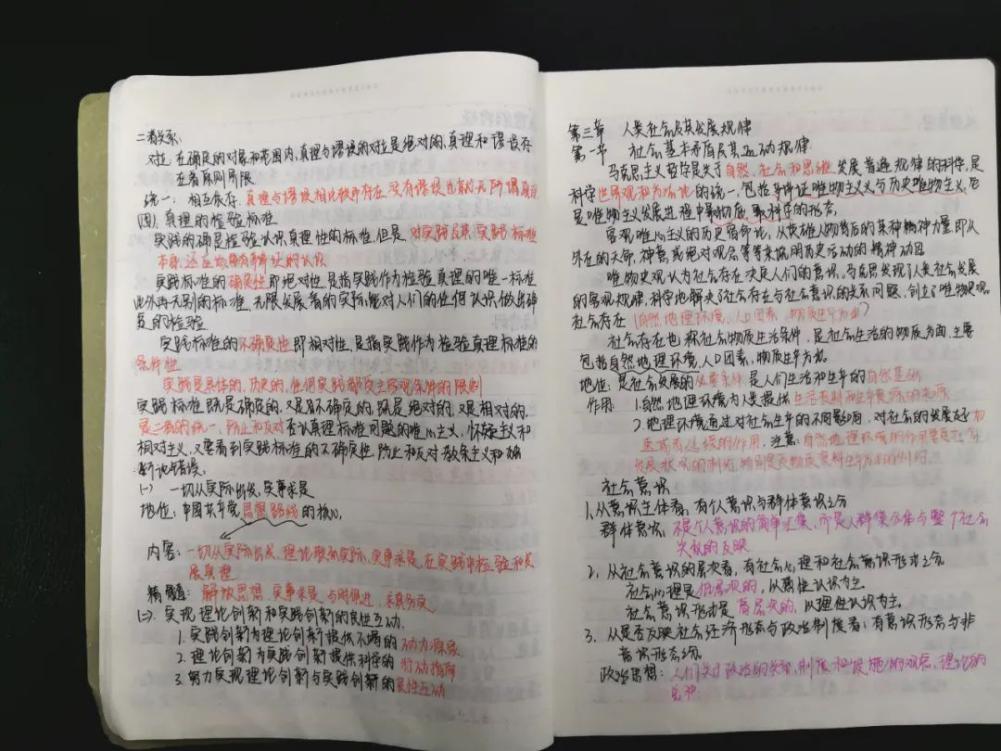 二者关系:
对立:在确定的对象和范围内,真理与谬误的对立是绝对的,真理和谬误存
在着原则界限
统一:相互依存,真理与谬误相比较而存在,没有谬误也就无所谓真理
四、真理的检验标准
实践的确是检验认识真理性的标准,但是,对实践及其实践标准
实践标准的确定性即绝对性是指实践作为检验真理的唯一标准
此外再无别的标准,无限发展着的实践能对人们的任何认识做出确
定的检验
实践标准的不确定性即相对性,是指实践作为检验真理标准的
条件性
实践是具体的、历史的,任何实践都受主客观条件的限制
实践标准既是确定的,又是不确定的,既是绝对的,又是相对的,
是二者的统一,防止和反对否认真理标准问题的唯心主义,怀疑主义和
相对主义,又要看到实践标准的不确定性,防止和反对教条主义和独
断论错误。
(一) 一切从实际出发,实事求是
地位:中国共产党思想路线的核心
内容:一切从实际出发,理论联系实际,实事求是,在实践中检验和发
展真理
精髓:解放思想,实事求是,与时俱进,求真务实
(二) 实现理论创新和实践创新的良性互动
1. 实践创新为理论创新提供不竭的动力源泉
2. 理论创新为实践创新提供科学的行动指南
3. 努力实现理论创新与实践创新的良性互动
第三章 人类社会及其发展规律
第一节 社会基本矛盾及其运动规律
马克思主义哲学是关于自然、社会和思维发展普遍规律的科学,是
科学世界观和方法论的统一,包括辩证唯物主义与历史唯物主义,它
是唯物主义发展进程中最彻底、最科学的形态。
客观唯心主义的历史宿命论,从英雄人物背后的某种精神力量即从
外在的天命,神意或绝对观念等等来说明历史活动的精神动因
唯物史观认为社会存在决定人们的意识,马克思发现了人类社会发展
的客观规律,科学地解决了社会存在与社会意识的关系问题,创立了唯物史观
社会存在(自然地理环境、人口因素、物质生产方式)
社会存在也称社会物质生活条件,是社会生活的物质方面,主要
包括自然地理环境,人口因素,物质生产方式
地位:是社会发展的必要条件是人们生活和生产的自然基础
作用:1.自然地理环境为人类提供生活资料和生产资料的来源
2.地理环境通过对社会生产的不同影响,对社会的发展起加
速或者延缓的作用,注意:自然地理环境的作用要受社会
社会意识
1.从意识主体看,有个人意识与群体意识之分
群体意识:不是个人意识的简单汇集,而是人群集合体与整个社会
关系的反映
2. 从社会意识的层次看,有社会心理和社会意识形式之分
社会心理是低层次的,以感性认识为主。
社会意识形式是高层次的,以理性认识为主。
3. 从是否反映社会经济形态与政治制度看:有意识形态与非
意识形态之分。
政治思想:人们关于政治的